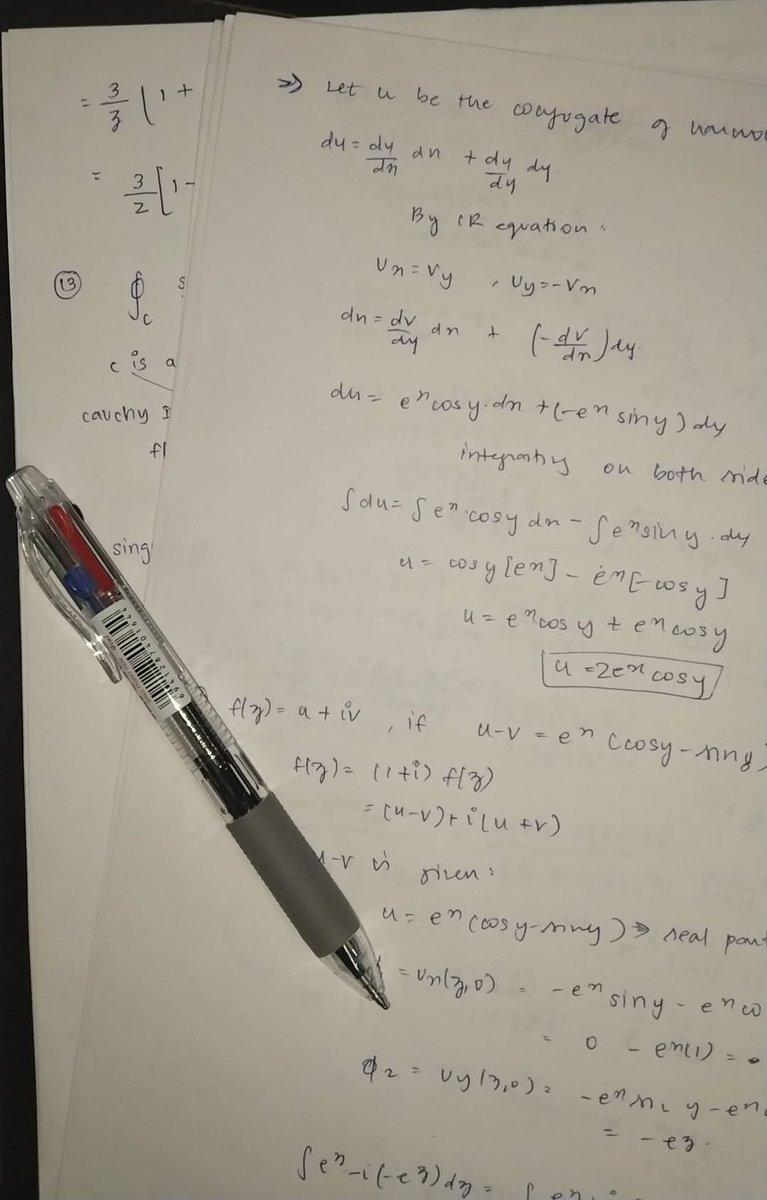 = 3/z [1 +
= 3/2 [1 -
(13) ∮c
c is a
cauchy
fl
sing
=> Let u be the conjugate of
du = du/dx dx + du/dy dy.
By CR equation.
Ux = Vy , Uy = -Vx
du = dv/dy dx + (-dv/dx) dy.
du = e^x cosy.dx + (-e^x siny) dy
integrating on both side
∫du = ∫e^x.cosy dx - ∫e^x siny.dy
u = cosy [e^x] - e^x [-cosy]
u = e^x cosy + e^x cosy
u = 2e^x cosy
f(z) = u + iv , if u-v = e^x (cosy - siny)
f(z) = (1+i) f(z)
= (u-v) + i(u+v)
u-v is given:
u = e^x (cosy - siny) → real part
= ux(z,0) = -e^x siny - e^x co
= 0 - e^x(1) =
φ2 = uy(z,0) = -e^x y - e^x
= -ez.
∫e^z - i(-e^z) dz = ∫
6941287401642